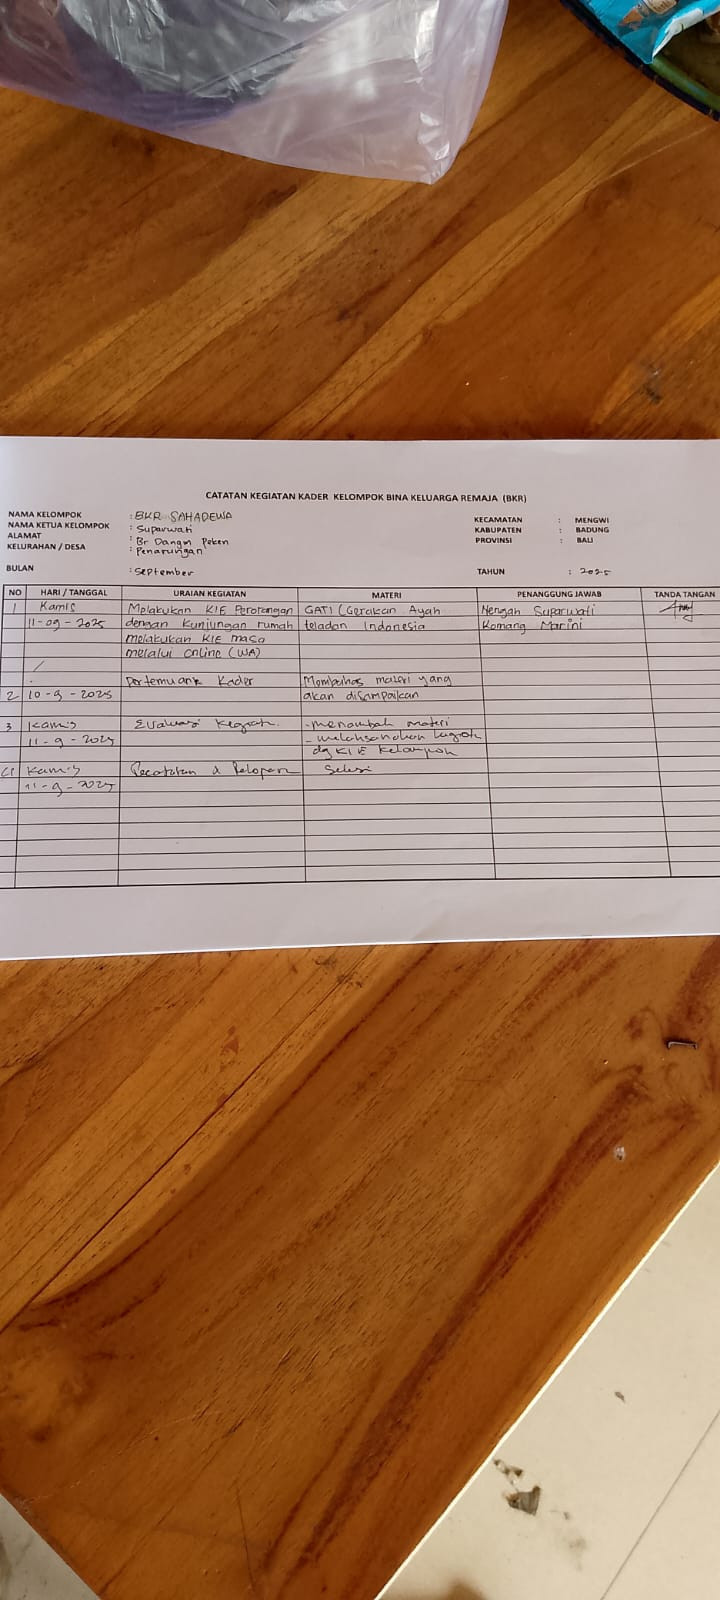 CATATAN KEGIATAN KADER KELOMPOK BINA KELUARGA REMAJA (BKR)
NAMA KELOMPOK : BKR SAHADEWA KECAMATAN : MENGWI
NAMA KETUA KELOMPOK : Suparwati KABUPATEN : BADUNG
ALAMAT : Br Dangin Peken PROVINSI : BALI
KELURAHAN / DESA : Penarungan
BULAN : September TAHUN : 2025
NO HARI / TANGGAL URAIAN KEGIATAN MATERI PENANGGUNG JAWAB TANDA TANGAN
1 Kamis Melakukan KIE Perorangan GATI (Gerakan Ayah Nengah Suparwati
11-09-2025 dengan Kunjungan rumah teladan Indonesia Komang Marini
melakukan KIE masa
melalui online (WA)
Pertemuan Kader Membahas materi yang
2 10-9-2025 akan disampaikan
3 Kamis Evaluasi - menambah materi
11-9-2025 - melaksanakan
dg KIE Kelompok
Kamis &
11-9-2025